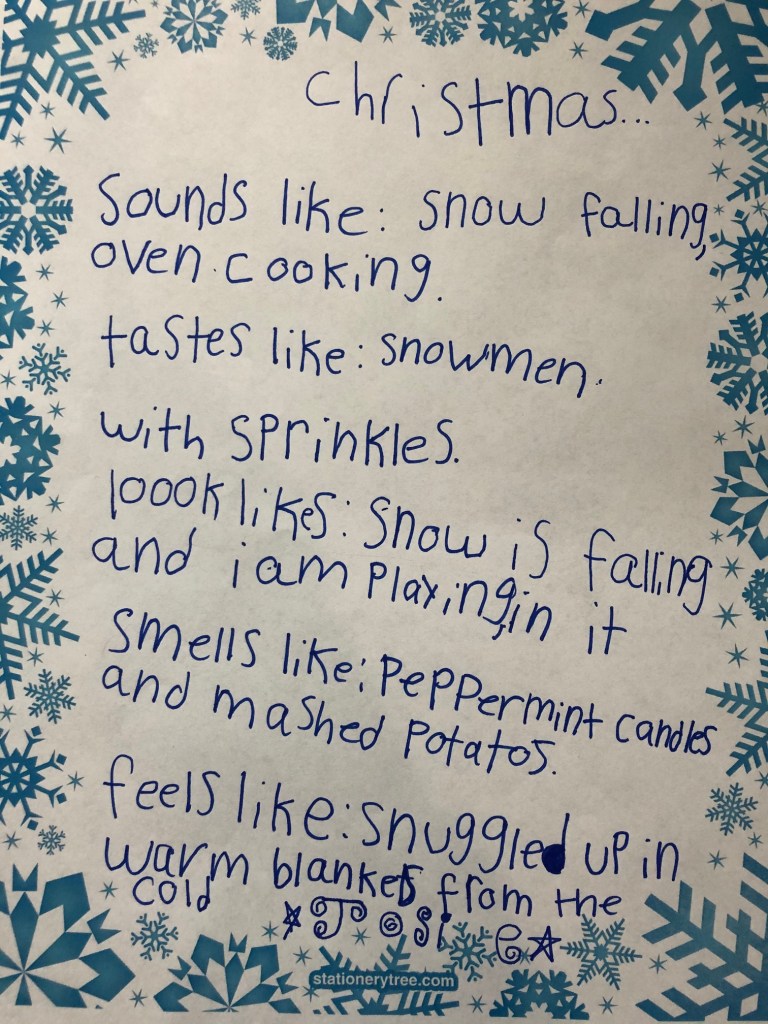 christmas...
Sounds like: snow falling,
oven cooking.
tastes like: snowmen.
with sprinkles.
loook likes: snow is falling
and i am Playing, in it
smells like: PePPermint candles
and mashed Potatos.
feels like: snuggled up in
warm blankets from the
cold
stationerytree.com